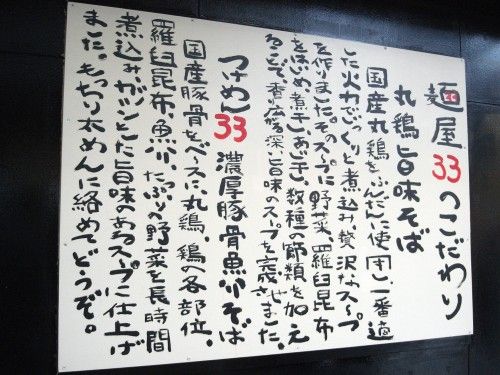 麺屋33のこだわり
丸鶏旨味そば
国産丸鶏をふんだんに使用し、一番適
した火力でじっくりと煮込み、贅沢なスープ
を作りました。そのスープに野菜、羅臼昆布
を始め、煮干し、あじ干し、数種の節類を加え
ることで、香り広がる深い旨味のスープを完成させました。
つけめし33 濃厚豚骨魚介そば
国産豚骨をベースに、丸鶏、鶏の各部位、
羅臼昆布、魚介、たっぷりの野菜を長時間
煮込みガツンとした旨味のあるスープに仕上げ
ました。もっちり太めんに絡めてどうぞ。